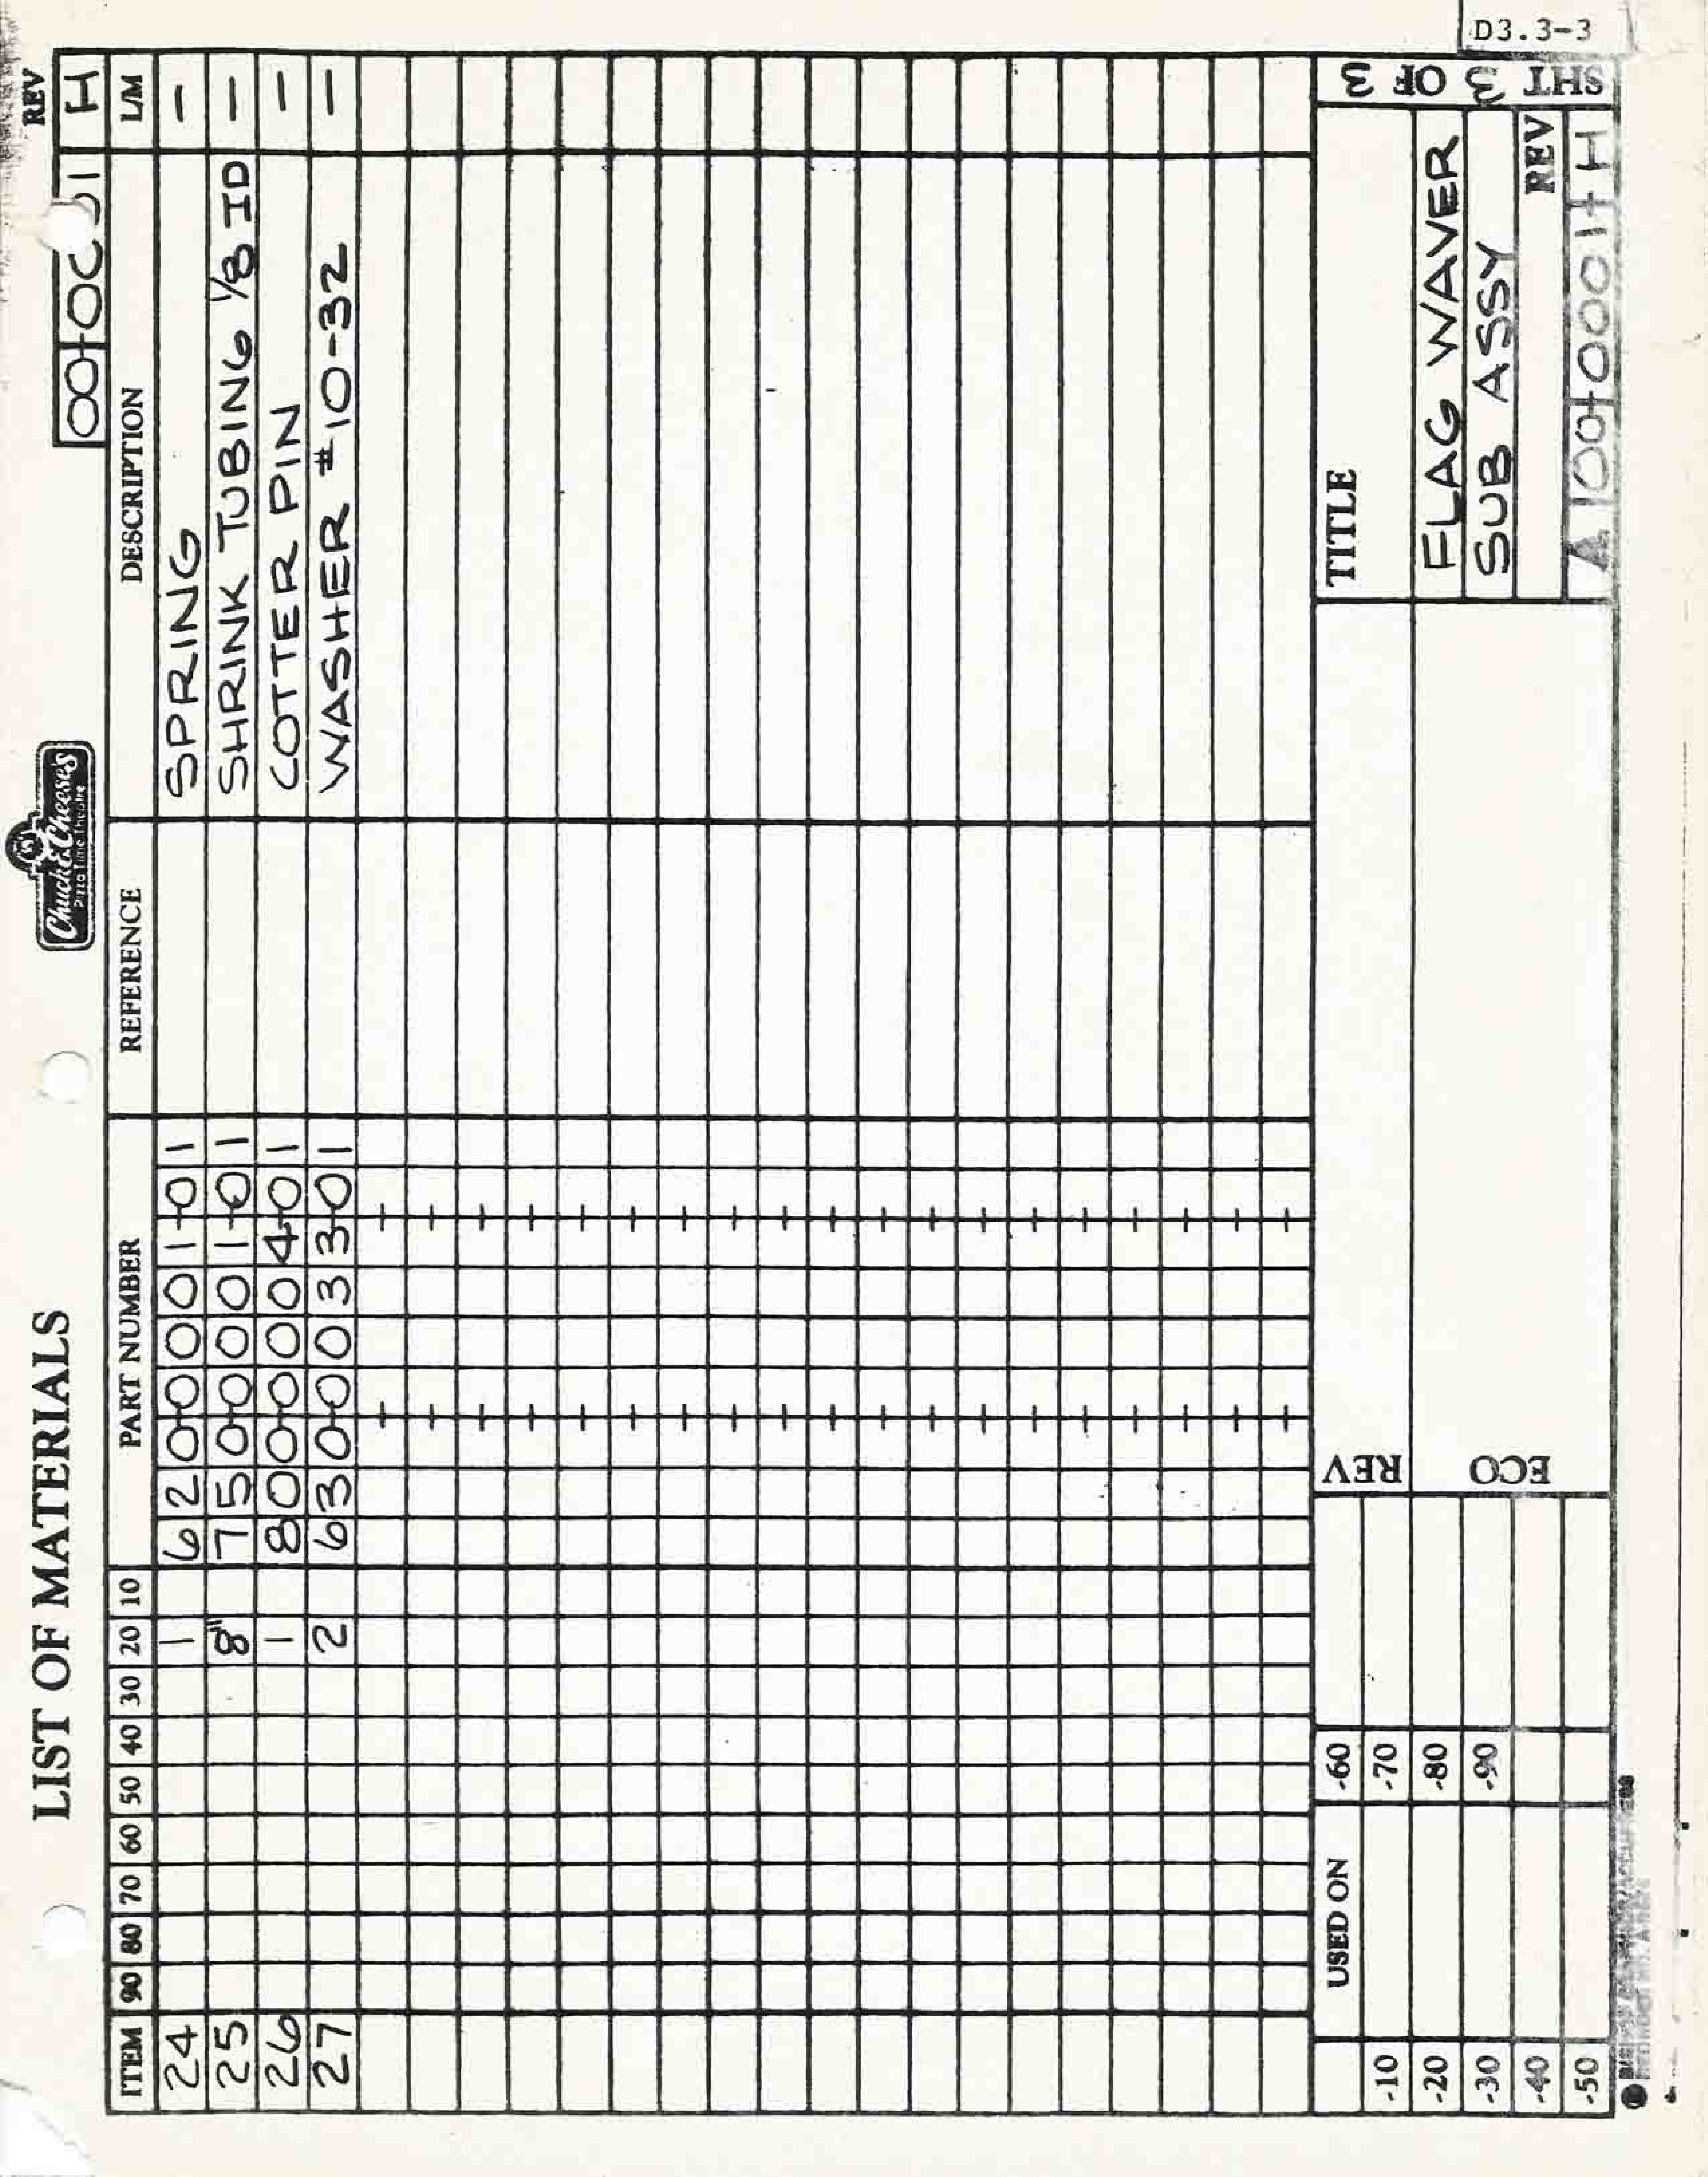 D3.3-3
LIST OF MATERIALS
Chuck E. Cheese's
Pizza Time Theatre
REV
H
ITEM 90 80 70 60 50 40 30 20 10 PART NUMBER REFERENCE DESCRIPTION L/M
24 1 620-0001-01 SPRING –
25 8" 750-0001-01 SHRINK TUBING 1/8 ID –
26 1 800-0004-01 COTTER PIN –
27 2 630-0033-01 WASHER #10-32 –
USED ON
-10
-20
-30
-40
-50
-60
-70
-80
-90
REV
ECO
TITLE
FLAG WAVER
SUB ASSY
REV
A 00-0001-H
SHT 3 OF 3